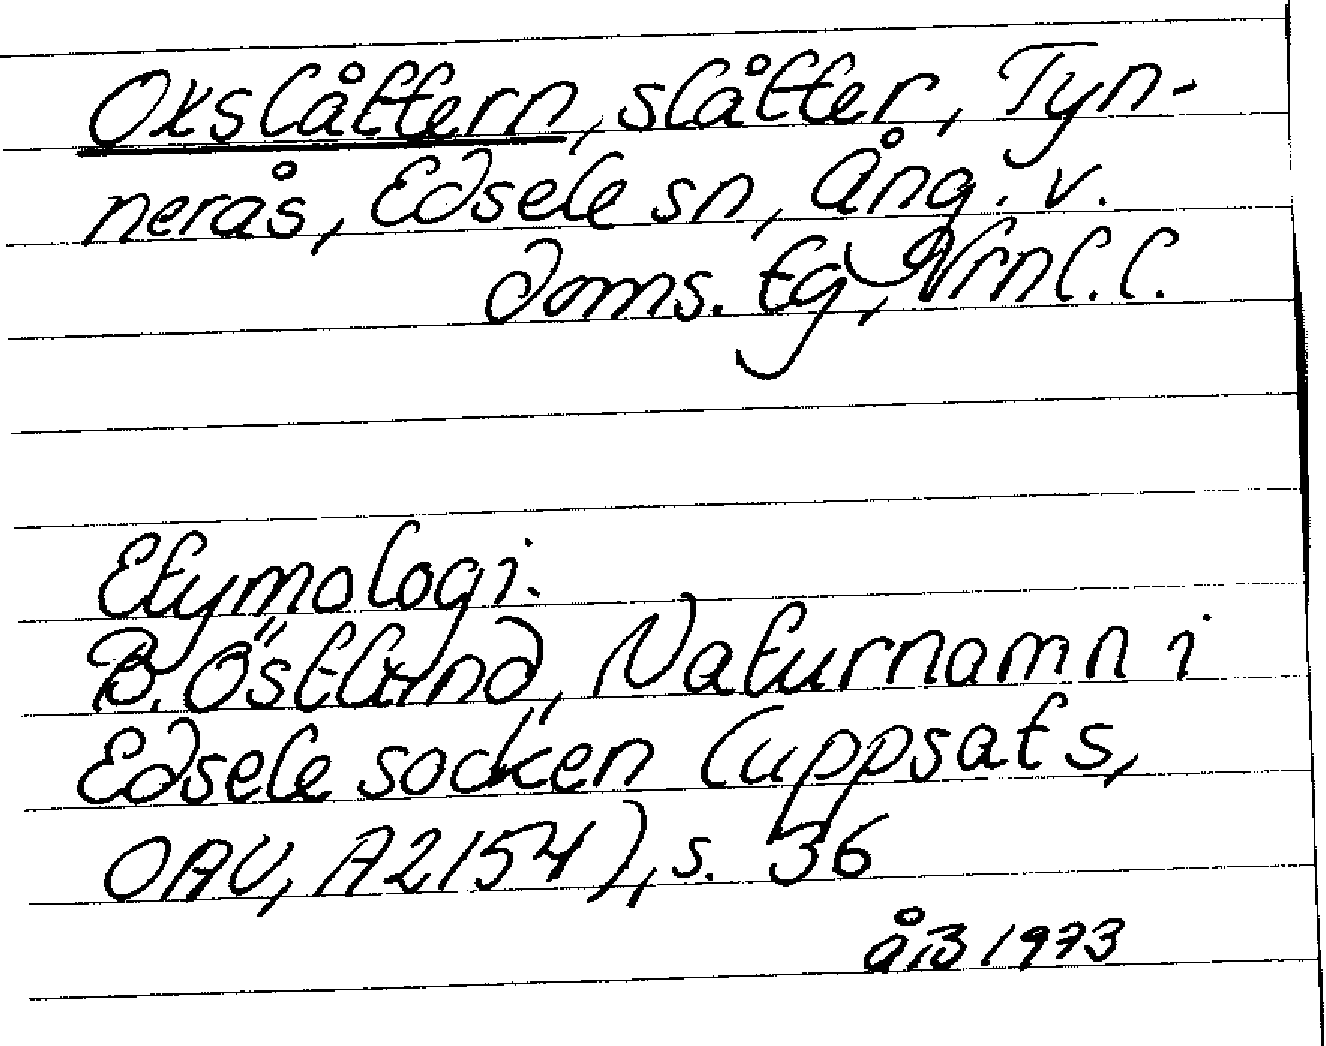 Oxslåttern, slåtter, Tyn-
nerås, Edsele sn, Ång. v.
doms. tg, Vrnl. l.
Etymologi.
B. Östlund, Naturnamn i
Edsele socken (uppsats,
OAU, A2154), s. 36
åB 1973